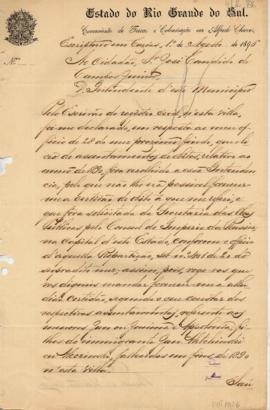 Estado do Rio Grande do Sul.
Commissão de Terras e Colonisação em Alfredo Chaves,
Escriptorio em Caxias, 1º de Agosto de 1895
Nº
Ao Cidadão, Dr. José Candido de
Campos Junior
D. Intendente d'este Municipio
Pelo Escrivão do registro civil, d'esta villa,
foi me declarado, em resposta ao meu of-
ficio de 28 do mez proximo findo, que o li-
vro de assentamentos de obitos, relativo ao
anno de 1890 foi recolhido a essa Intenden-
cia, pelo que não lhe era possivel fornecer-
me a certidão de obito a que me referi, e
que fora solicitada da Secretaria das Obras
Publicas pelo Consul do Imperio da Russia,
na capital d'este Estado, conforme o officio
d'aquella Repartição, sob nº de 22 do
supradito mez; assim, pois, rogo-vos que
vos digneis mandar fornecer-me a allu-
dida certidão, segundo o que constar dos
respectivos assentamentos, referente aos
menores Jan ou
lhos do immigrante Jan
ou fallecidos em fins de 1890
n'esta villa.
Sau